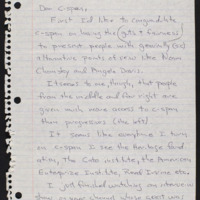 Dear C-span,
First I'd like to congratulate
c-span on having the guts & fairness
to present people with genuinely
alternative points of view like Noam
Chomsky and Angela Davis.
It seems to me, though, that people
from the middle and far right are
given much more access to c-span
than progressives (the left)
It seems like everytime I turn
on c-span I see the Heritage Found
ation, the Cato institute, the American
Enterprise Institute, Reed Irvine etc.
I just finished watching an interview